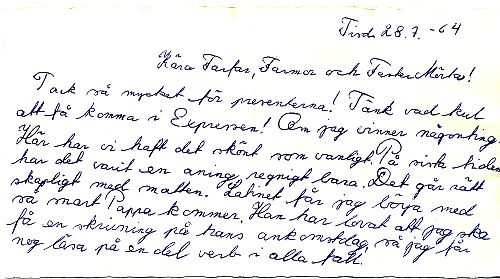 Tisd 28.7. -64
Kära Farfar, Farmor och Faster Märta!
Tack så mycket för presenterna! Tänk vad kul
att få komma i Expressen! Om jag vinner någonting
Här har vi haft det skönt som vanligt. På sista tiden
har det varit en aning regnigt bara. Det går rätt
skapligt med matten. Latinet får jag börja med
så snart Pappa kommer. Han har lovat att jag ska
få en skrivning på hans ankomstdag, så jag får
nog läsa på en del verb i alla fall.